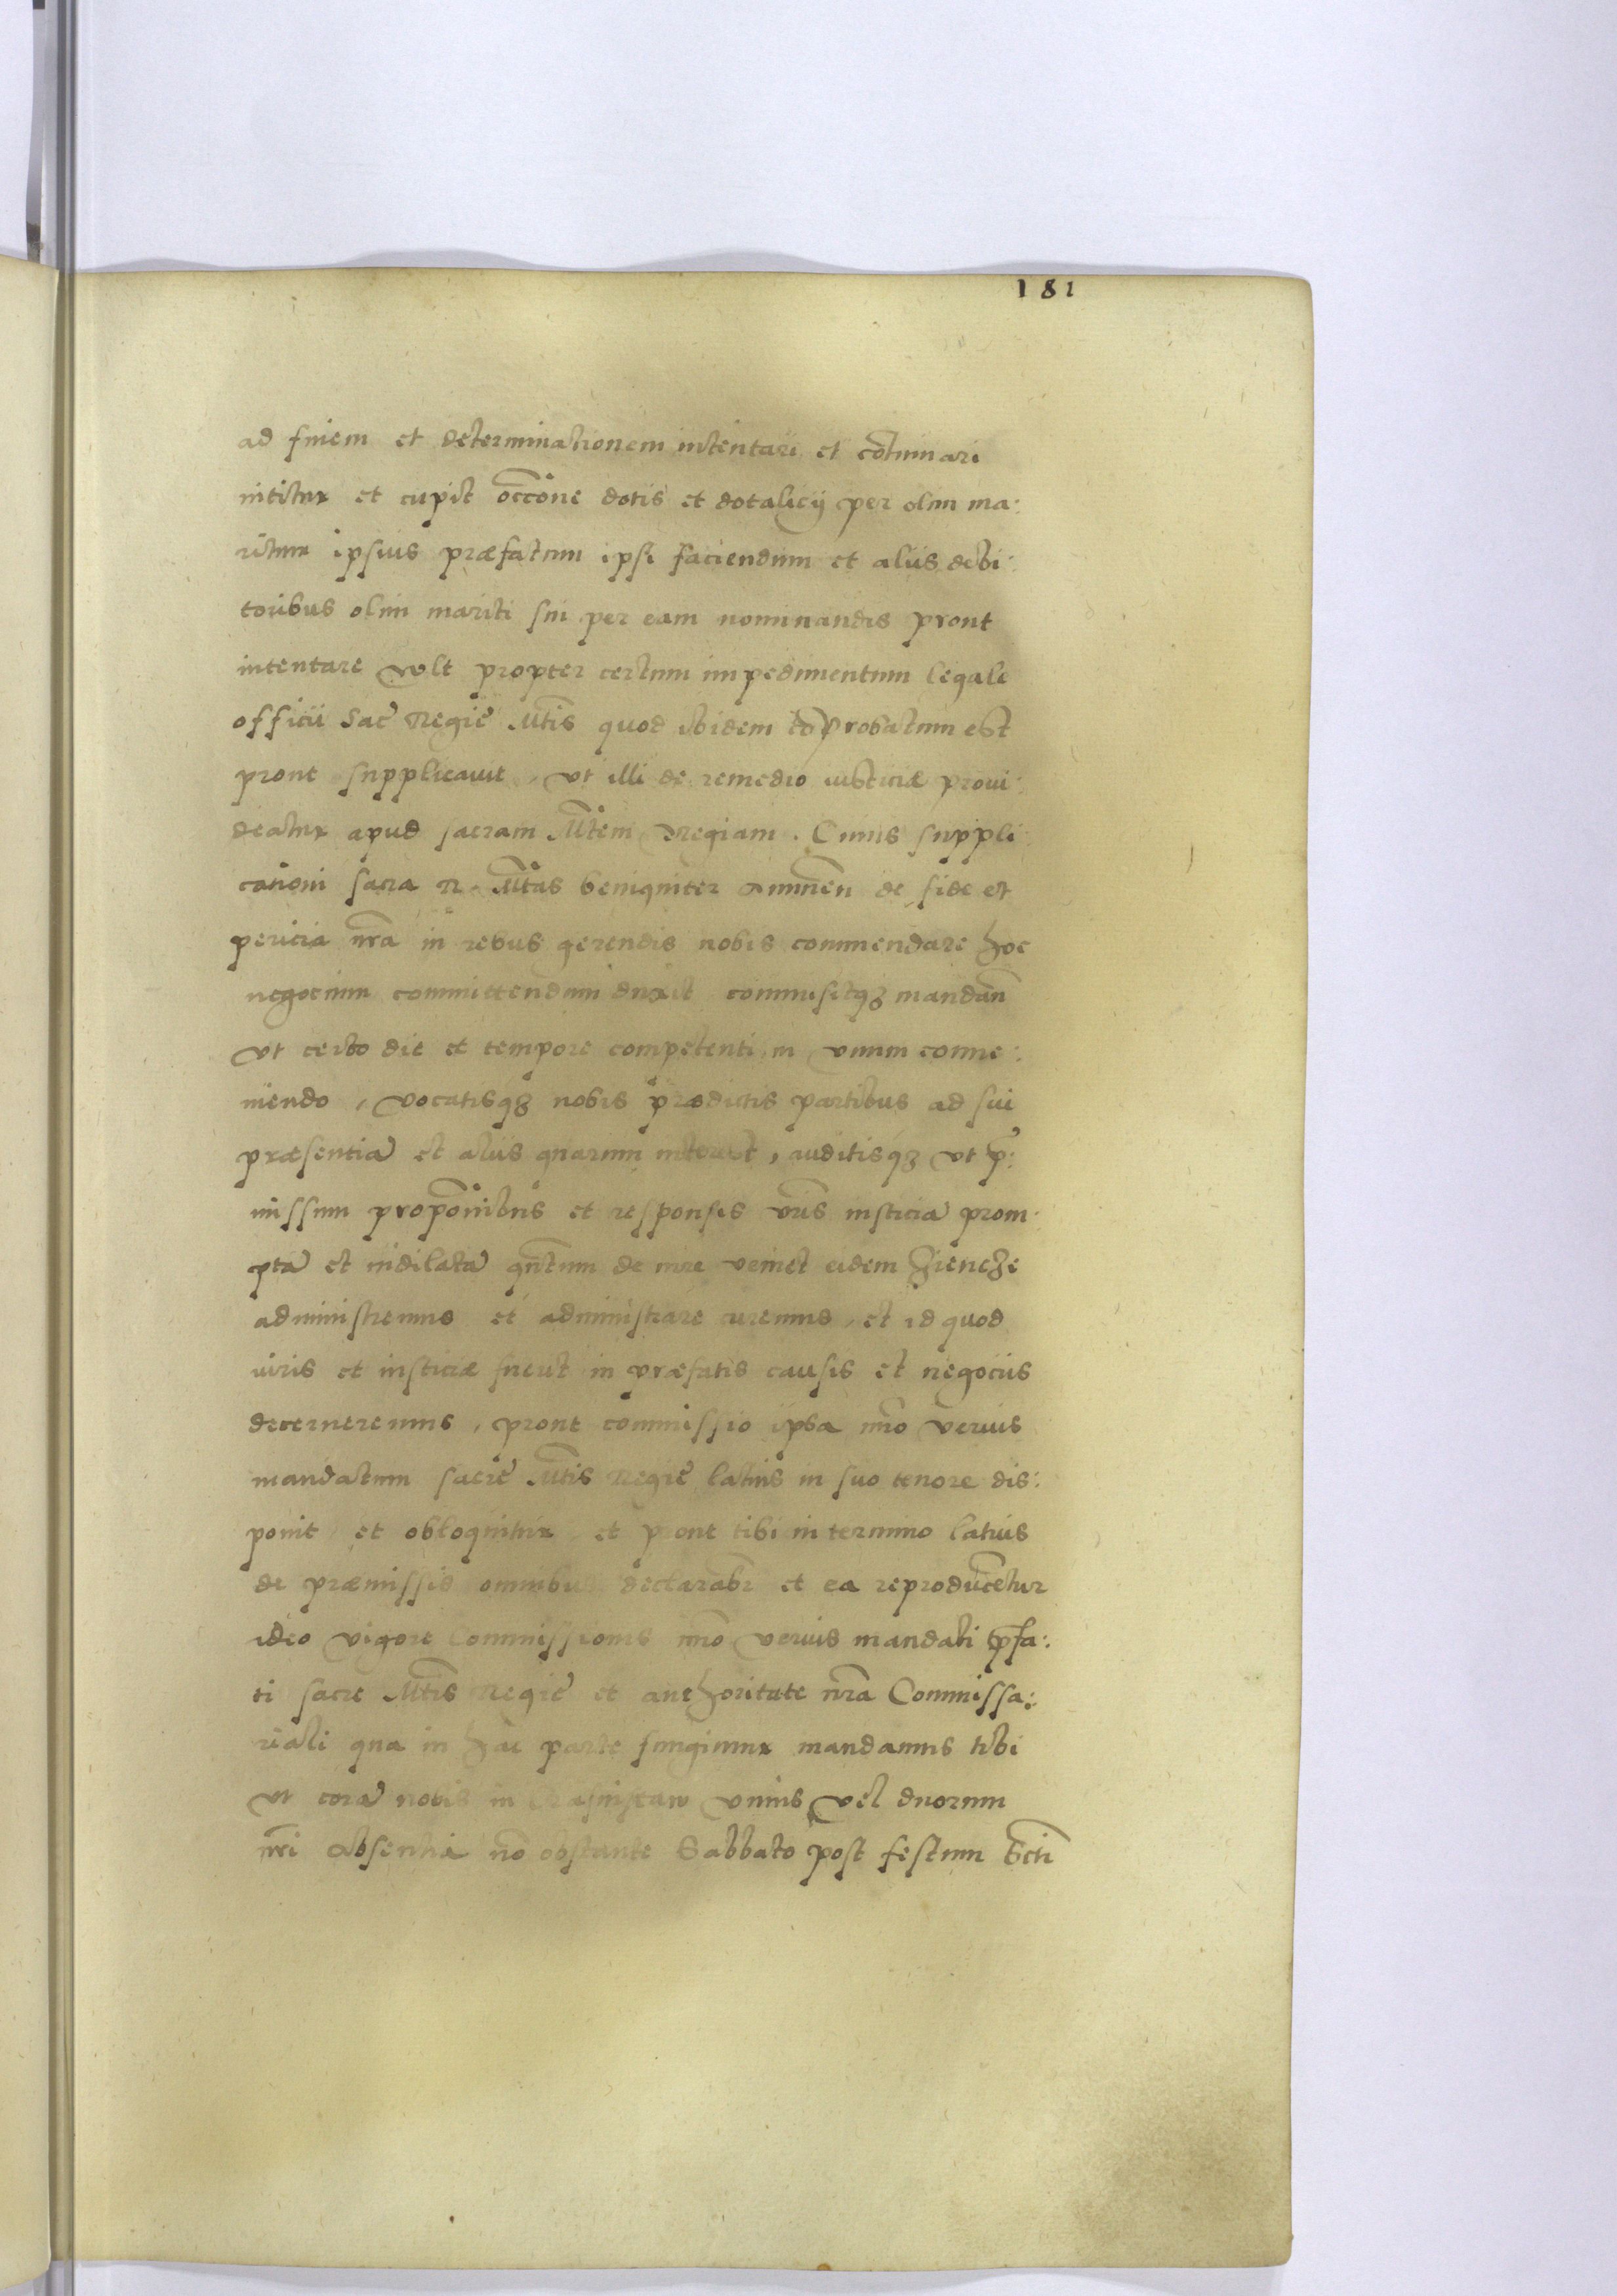 181
ad finem et determinationem intentari et cōtinuari
nititur et cupit occōne dotis et dotalicij per olim ma:
ritum ipsius præfatum ipsi faciendum et aliis debi:
toribus olim mariti sui per eam nominandis prout
intentare volt propter certum impedimentum legale
officii Sac̄ Regie Mtis quod ibidem cōprobatum est
prout supplicauit, vt illi de remedio iusticiæ proui:
deatur apud sacram Mtem Regiam. Cuius suppli
cationi sacra R. Mtas benigniter annuen̄ de fide et
pericia nr̄a in rebus gerendis nobis commendare hoc
negocium committendum duxit commisitqȝ mandan̄
vt certo die et tempore competenti in vnum conue:
niendo, vocatisqȝ nobis prædictis partibus ad sui
præsentiā et aliis quarum interest, auditisqȝ vt p̄:
missum propōnibus et responsis vr̄is iusticiā prom:
ptā et indilatā qn̄tum de iure veniet eidem
administremus et administrare curemus, et id quod
iuris et iusticiæ fuerit in præfatis causis et negociis
decerneremus, prout commissio ipsa īmo verius
mandatum sacre Mtis Regie latius in suo tenore dis:
ponit et obloquitur et prout tibi in termino latius
de præmissis omnibus declarabr̄ et ea reproducētur
ideo vigore Commissionis īmo verius mandati p̄fa:
ti sacre Mtis Regie et authoritate nr̄a Commissa:
riali qua in hac parte fungimur mandamus tibi
vt corā nobis in vnius vel duorum
nr̄i absentia nō obstante Sabbato post festum Scti